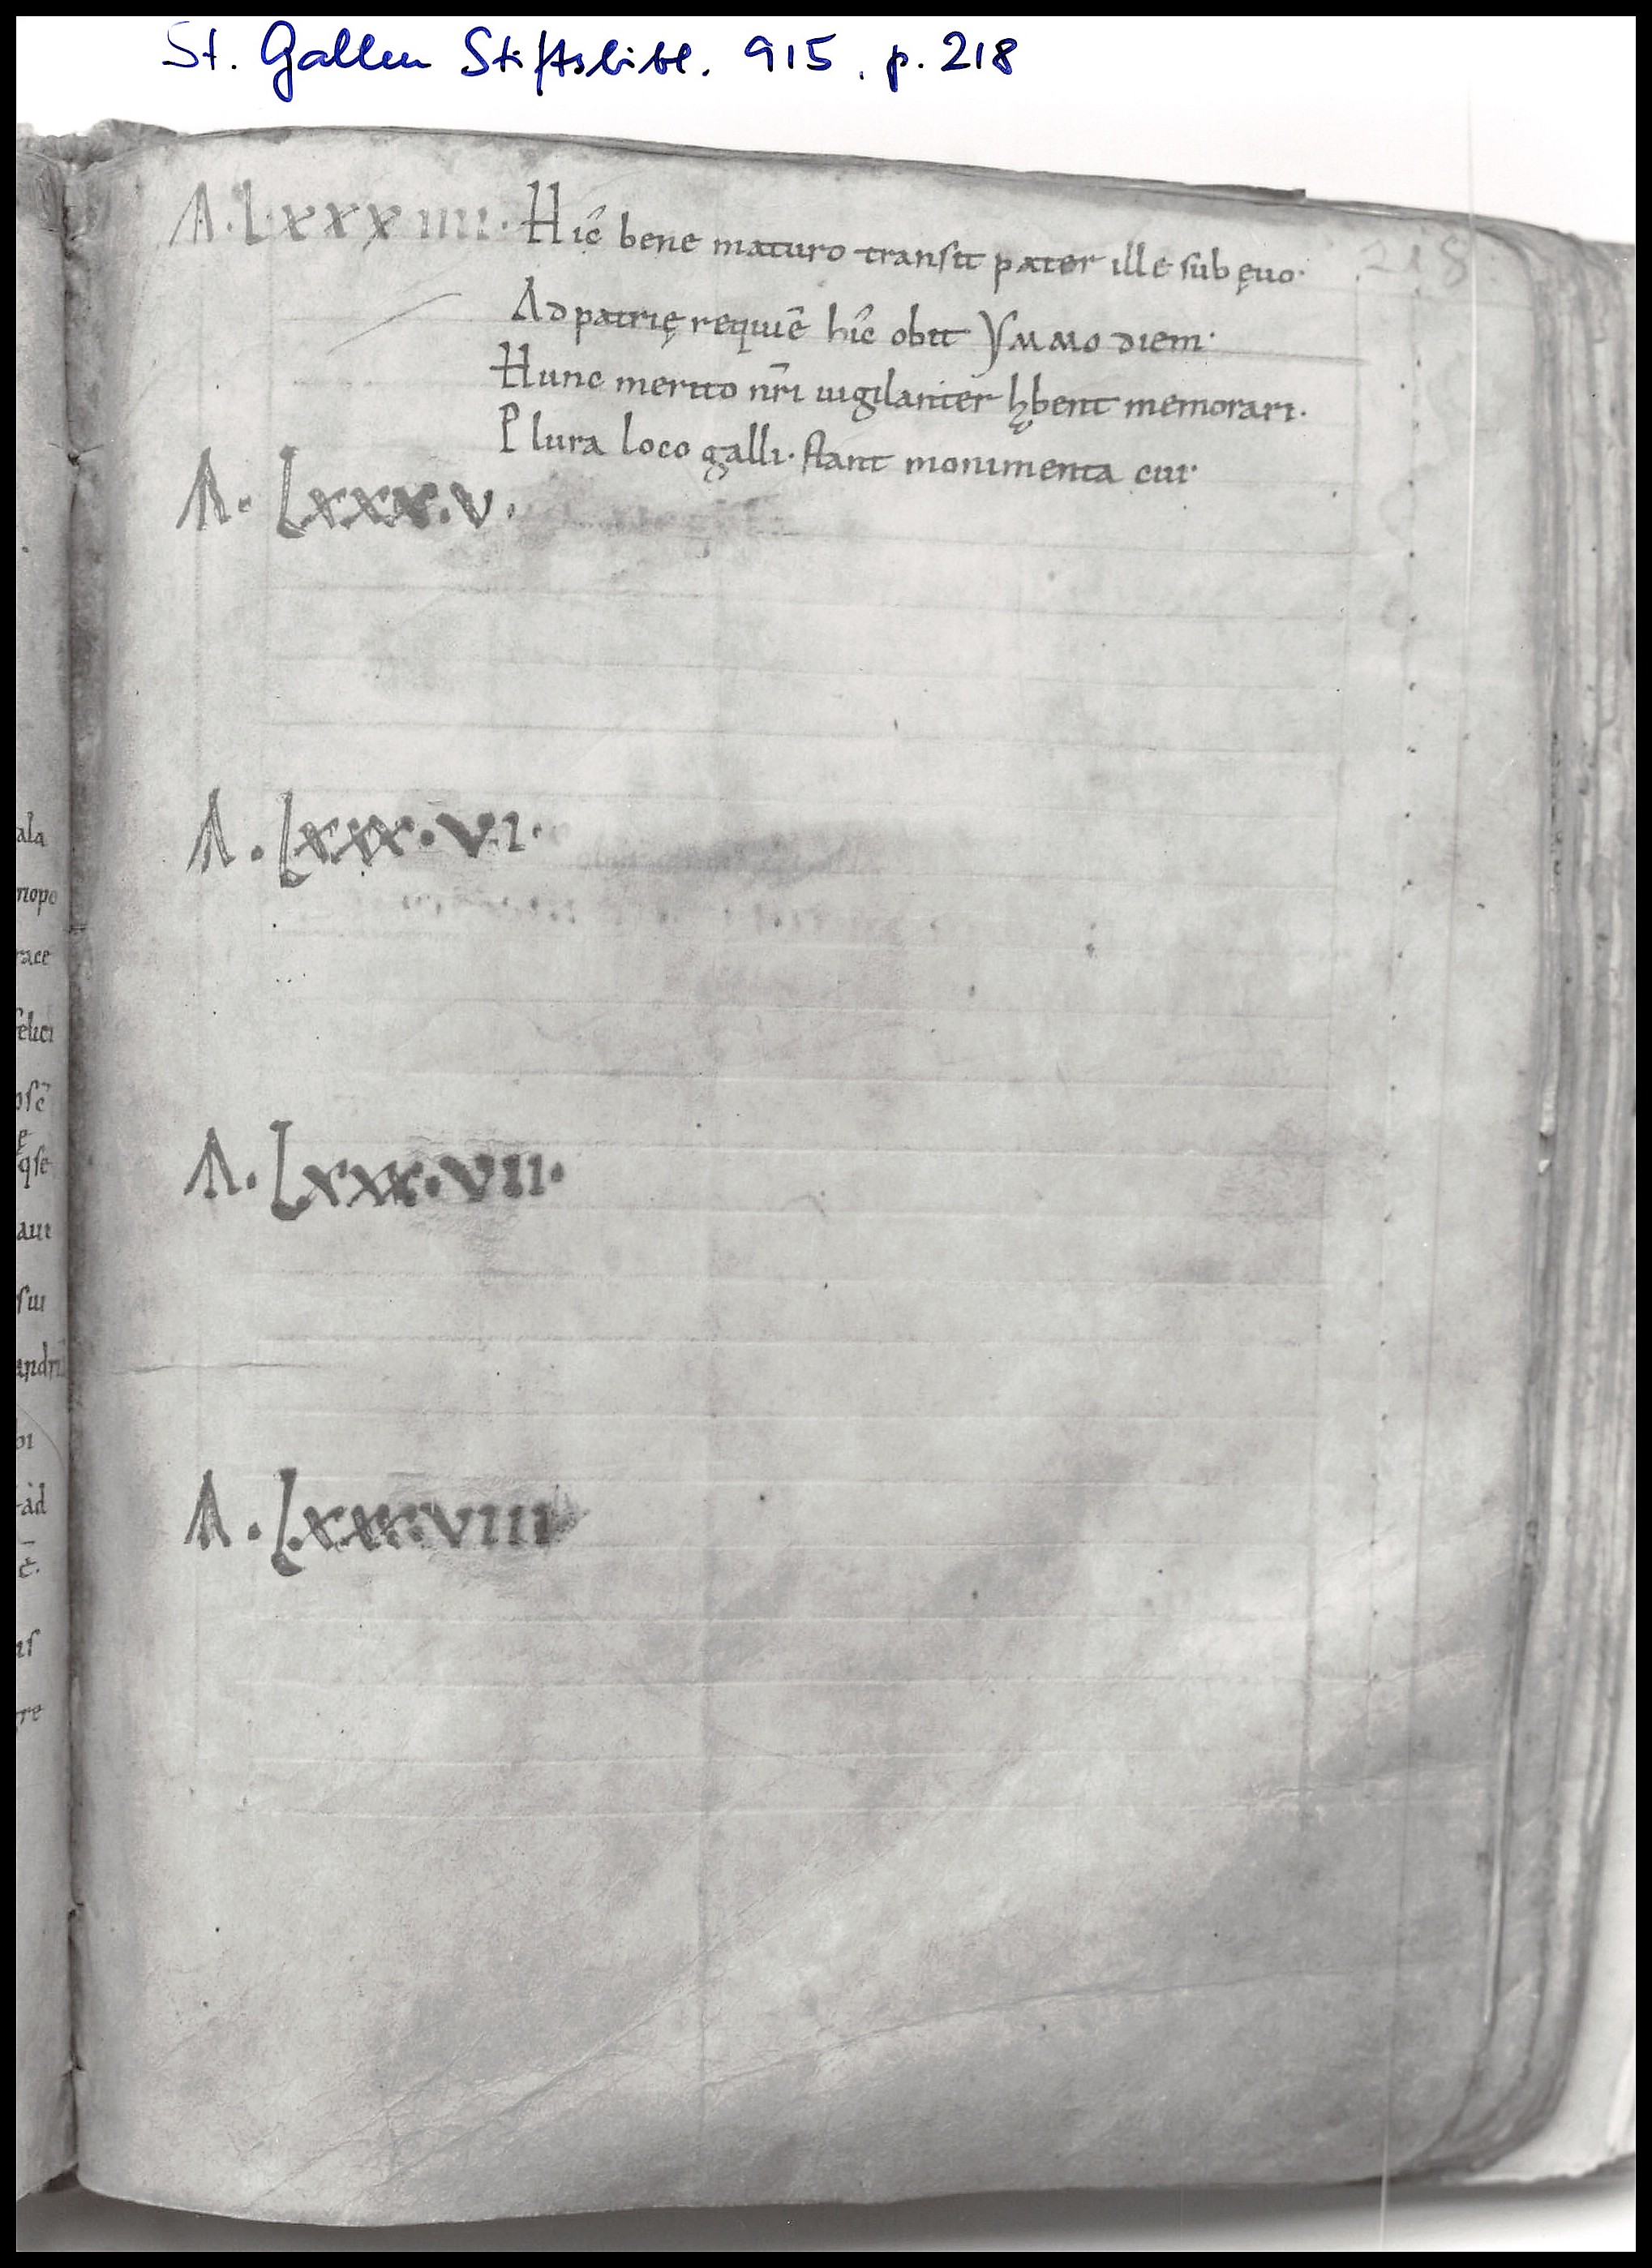 St. Gallen Stiftsbibl. 915, p. 218
A. Lxxxiiii. Hic̄ bene maturo transit pater ille sub ęuo.
218
Ad patrię requiē hic̄ obit ymmo diem.
Hunc merito nr̄i uigilanter hębent memorari.
Plura loco galli. stant monimenta cui.
A. Lxxx.v.
A. Lxxx.vi.
A. Lxxx.vii.
A. Lxxx.viii
ala
mopo
race
felici
osc̄
ę
qse
aui
sui
andri
oi
ad
c̄.
as
re